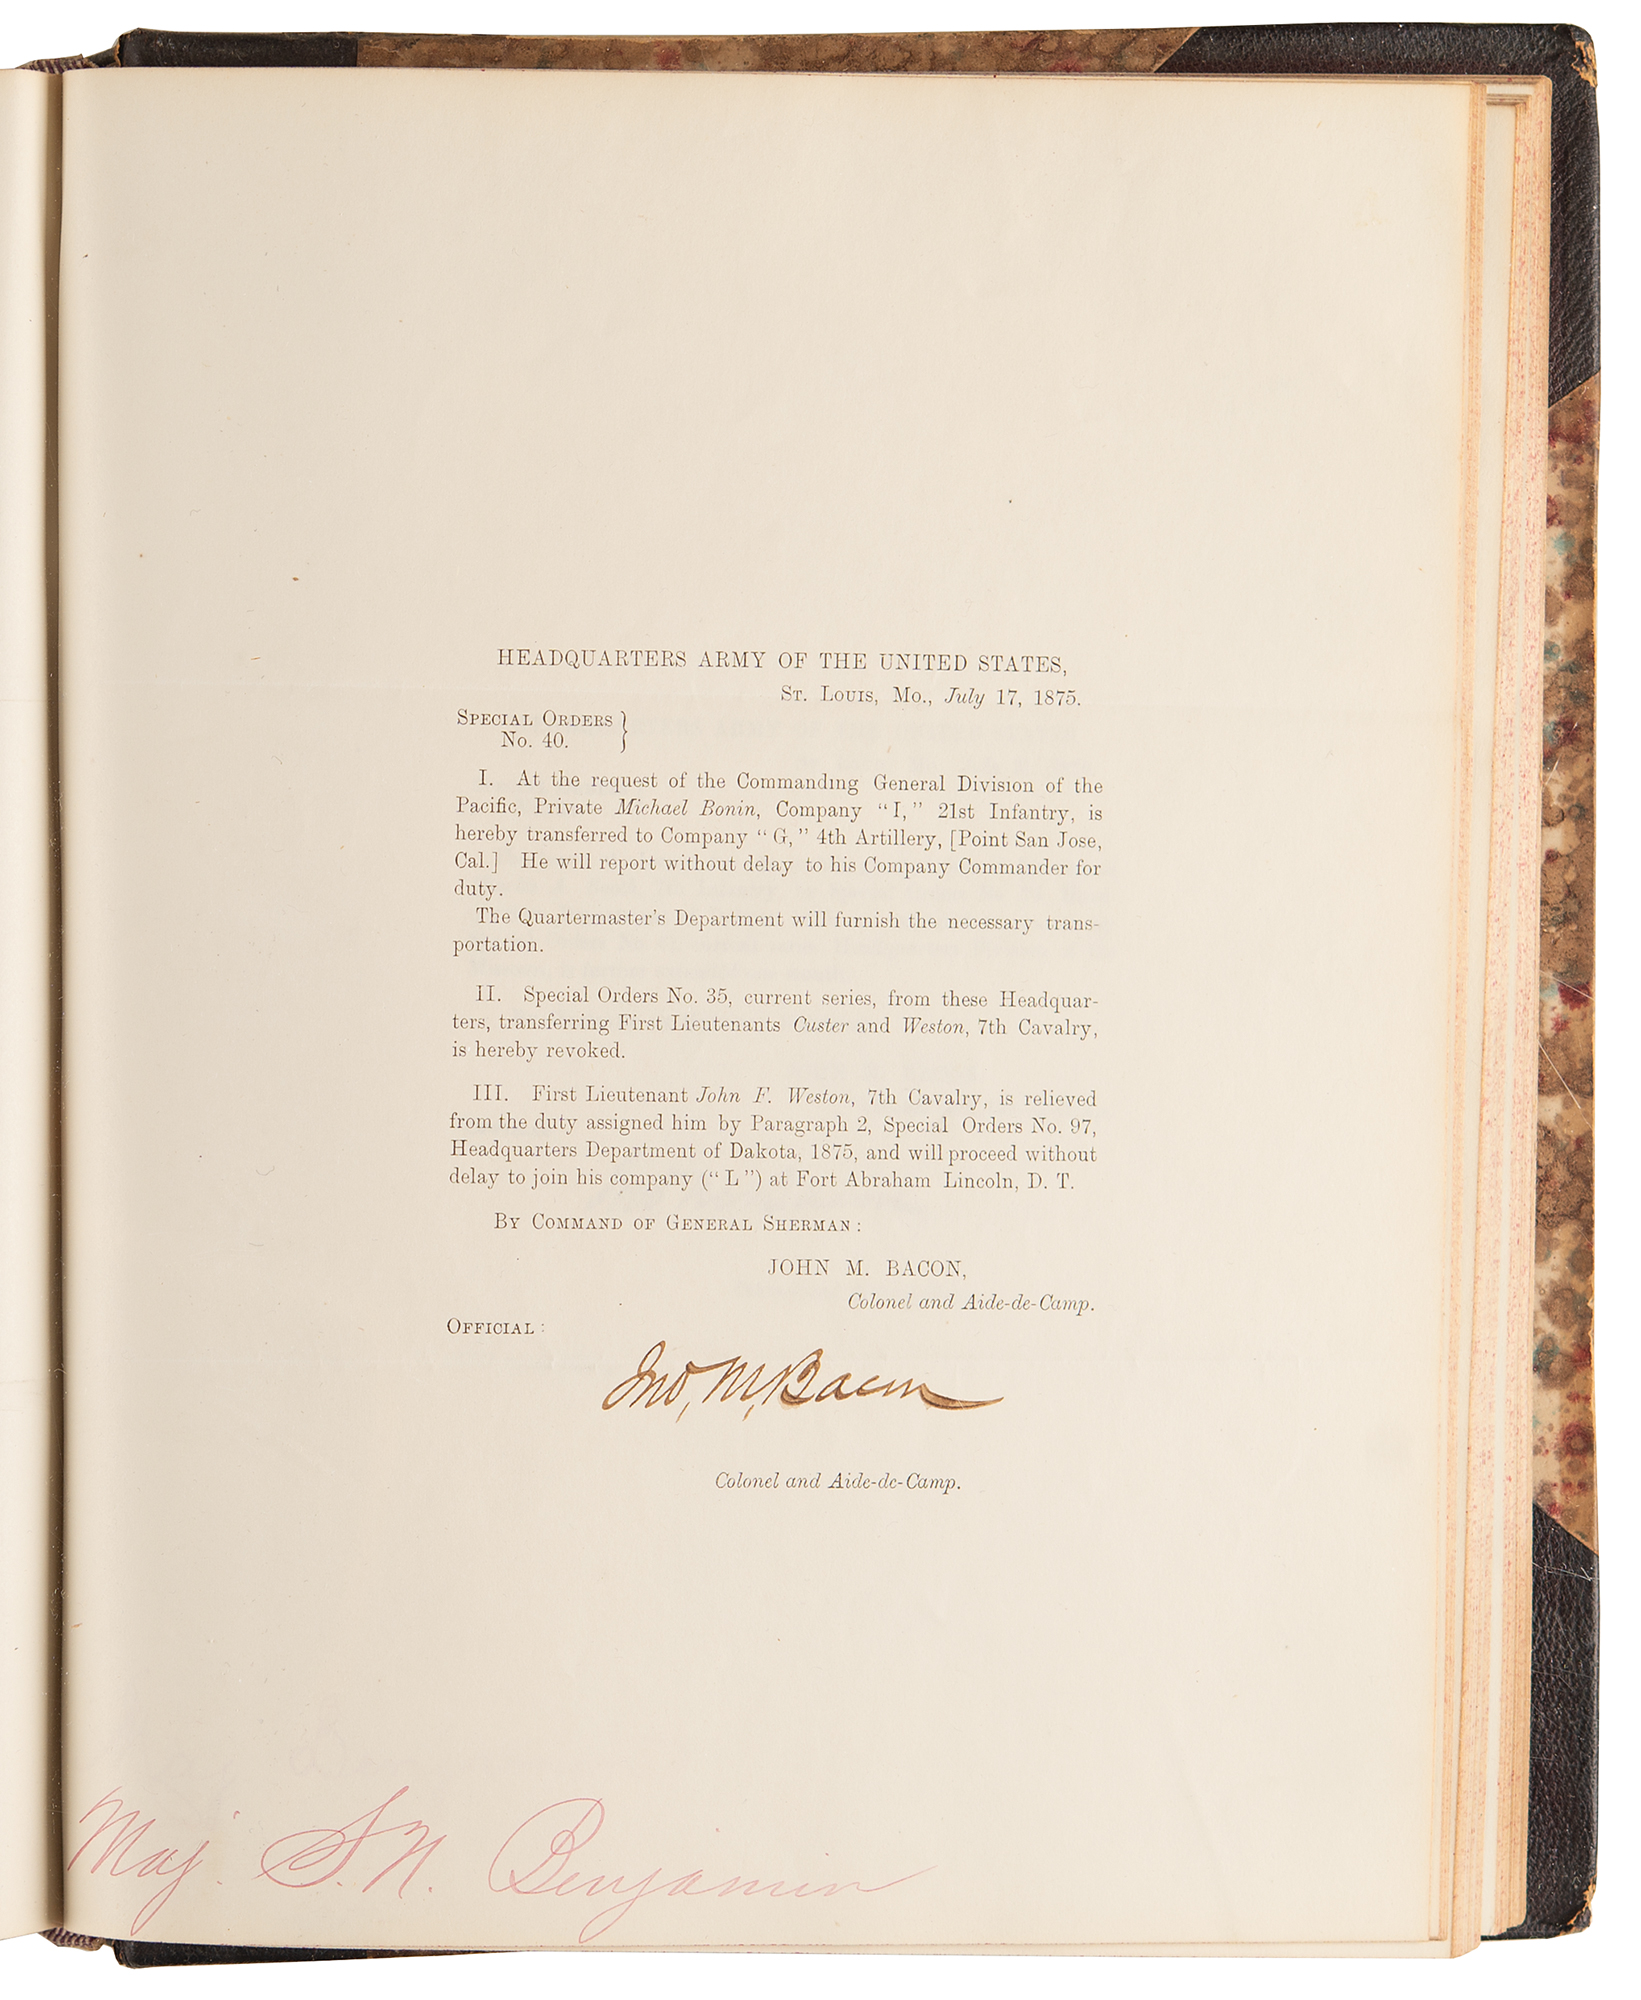 HEADQUARTERS ARMY OF THE UNITED STATES,
St. Louis, Mo., July 17, 1875.
Special Orders }
No. 40.
I. At the request of the Commanding General Division of the
Pacific, Private Michael Bonin, Company “I,” 21st Infantry, is
hereby transferred to Company “G,” 4th Artillery, [Point San Jose,
Cal.] He will report without delay to his Company Commander for
duty.
The Quartermaster's Department will furnish the necessary trans-
portation.
II. Special Orders No. 35, current series, from these Headquar-
ters, transferring First Lieutenants Custer and Weston, 7th Cavalry,
is hereby revoked.
III. First Lieutenant John F. Weston, 7th Cavalry, is relieved
from the duty assigned him by Paragraph 2, Special Orders No. 97,
Headquarters Department of Dakota, 1875, and will proceed without
delay to join his company (“L”) at Fort Abraham Lincoln, D. T.
By Command of General Sherman:
JOHN M. BACON,
Colonel and Aide-de-Camp.
Official:
Jno, M, Bacon
Colonel and Aide-de-Camp.
Maj. S. N. Benjamin